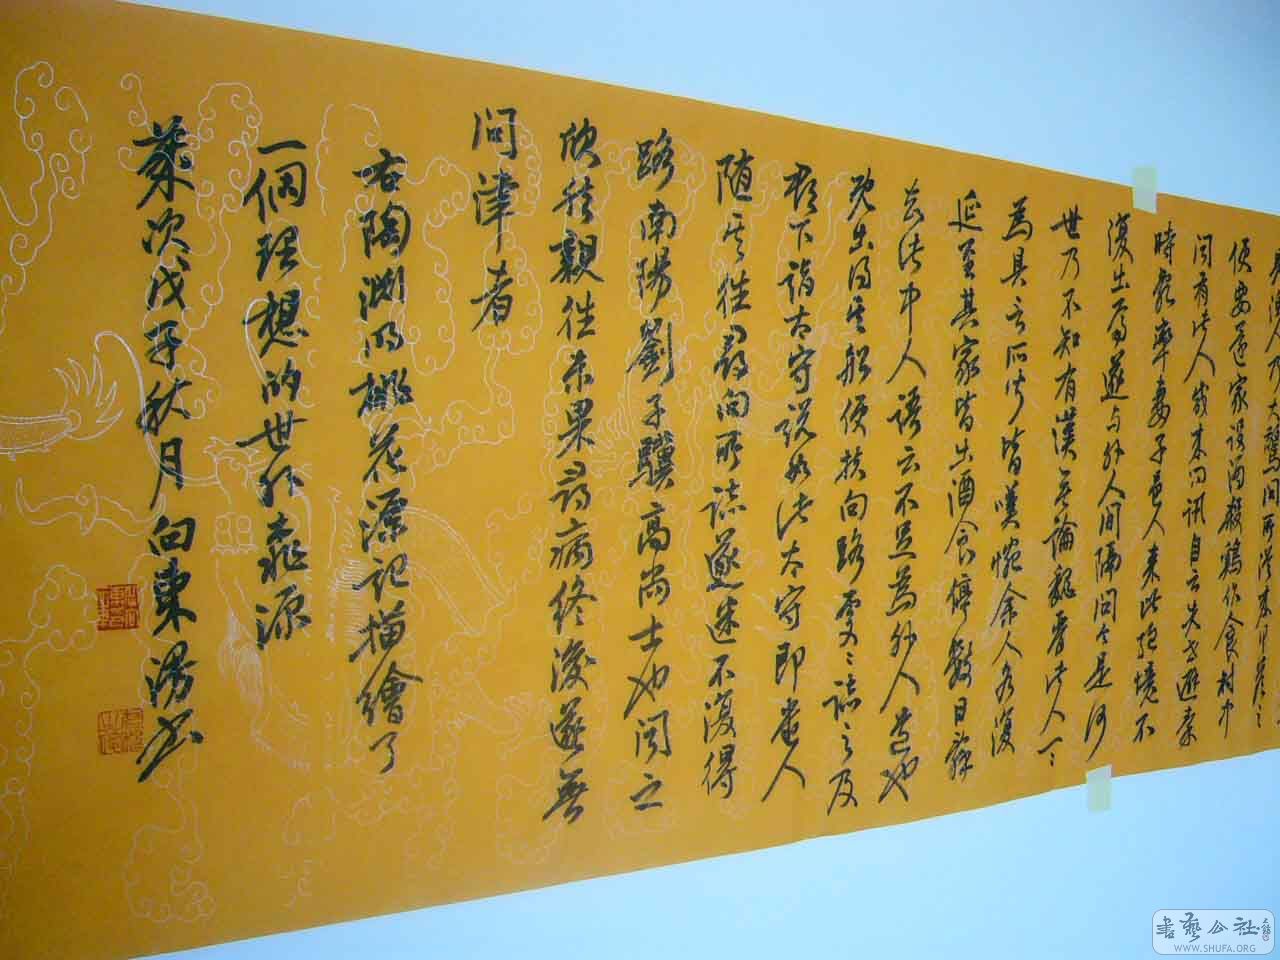 見漁人乃大驚問所從來具答之
便要還家設酒殺雞作食村中
聞有此人咸來問訊自云先世避秦
時亂率妻子邑人來此絕境不
復出焉遂與外人間隔問今是何
世乃不知有漢無論魏晉此人一〻
為具言所聞皆嘆惋餘人各復
延至其家皆出酒食停數日辭
去此中人語云不足為外人道也
既出得其船便扶向路處〻誌之及
郡下詣太守說如此太守即遣人
隨其往尋向所誌遂迷不復得
路南陽劉子驥高尚士也聞之
欣然親往未果尋病終後遂無
問津者
右陶淵明桃花源記描繪了
一個理想的世外桃源
歲次戊子秋月向東湯书
書藝公社
WWW.SHUFA.ORG